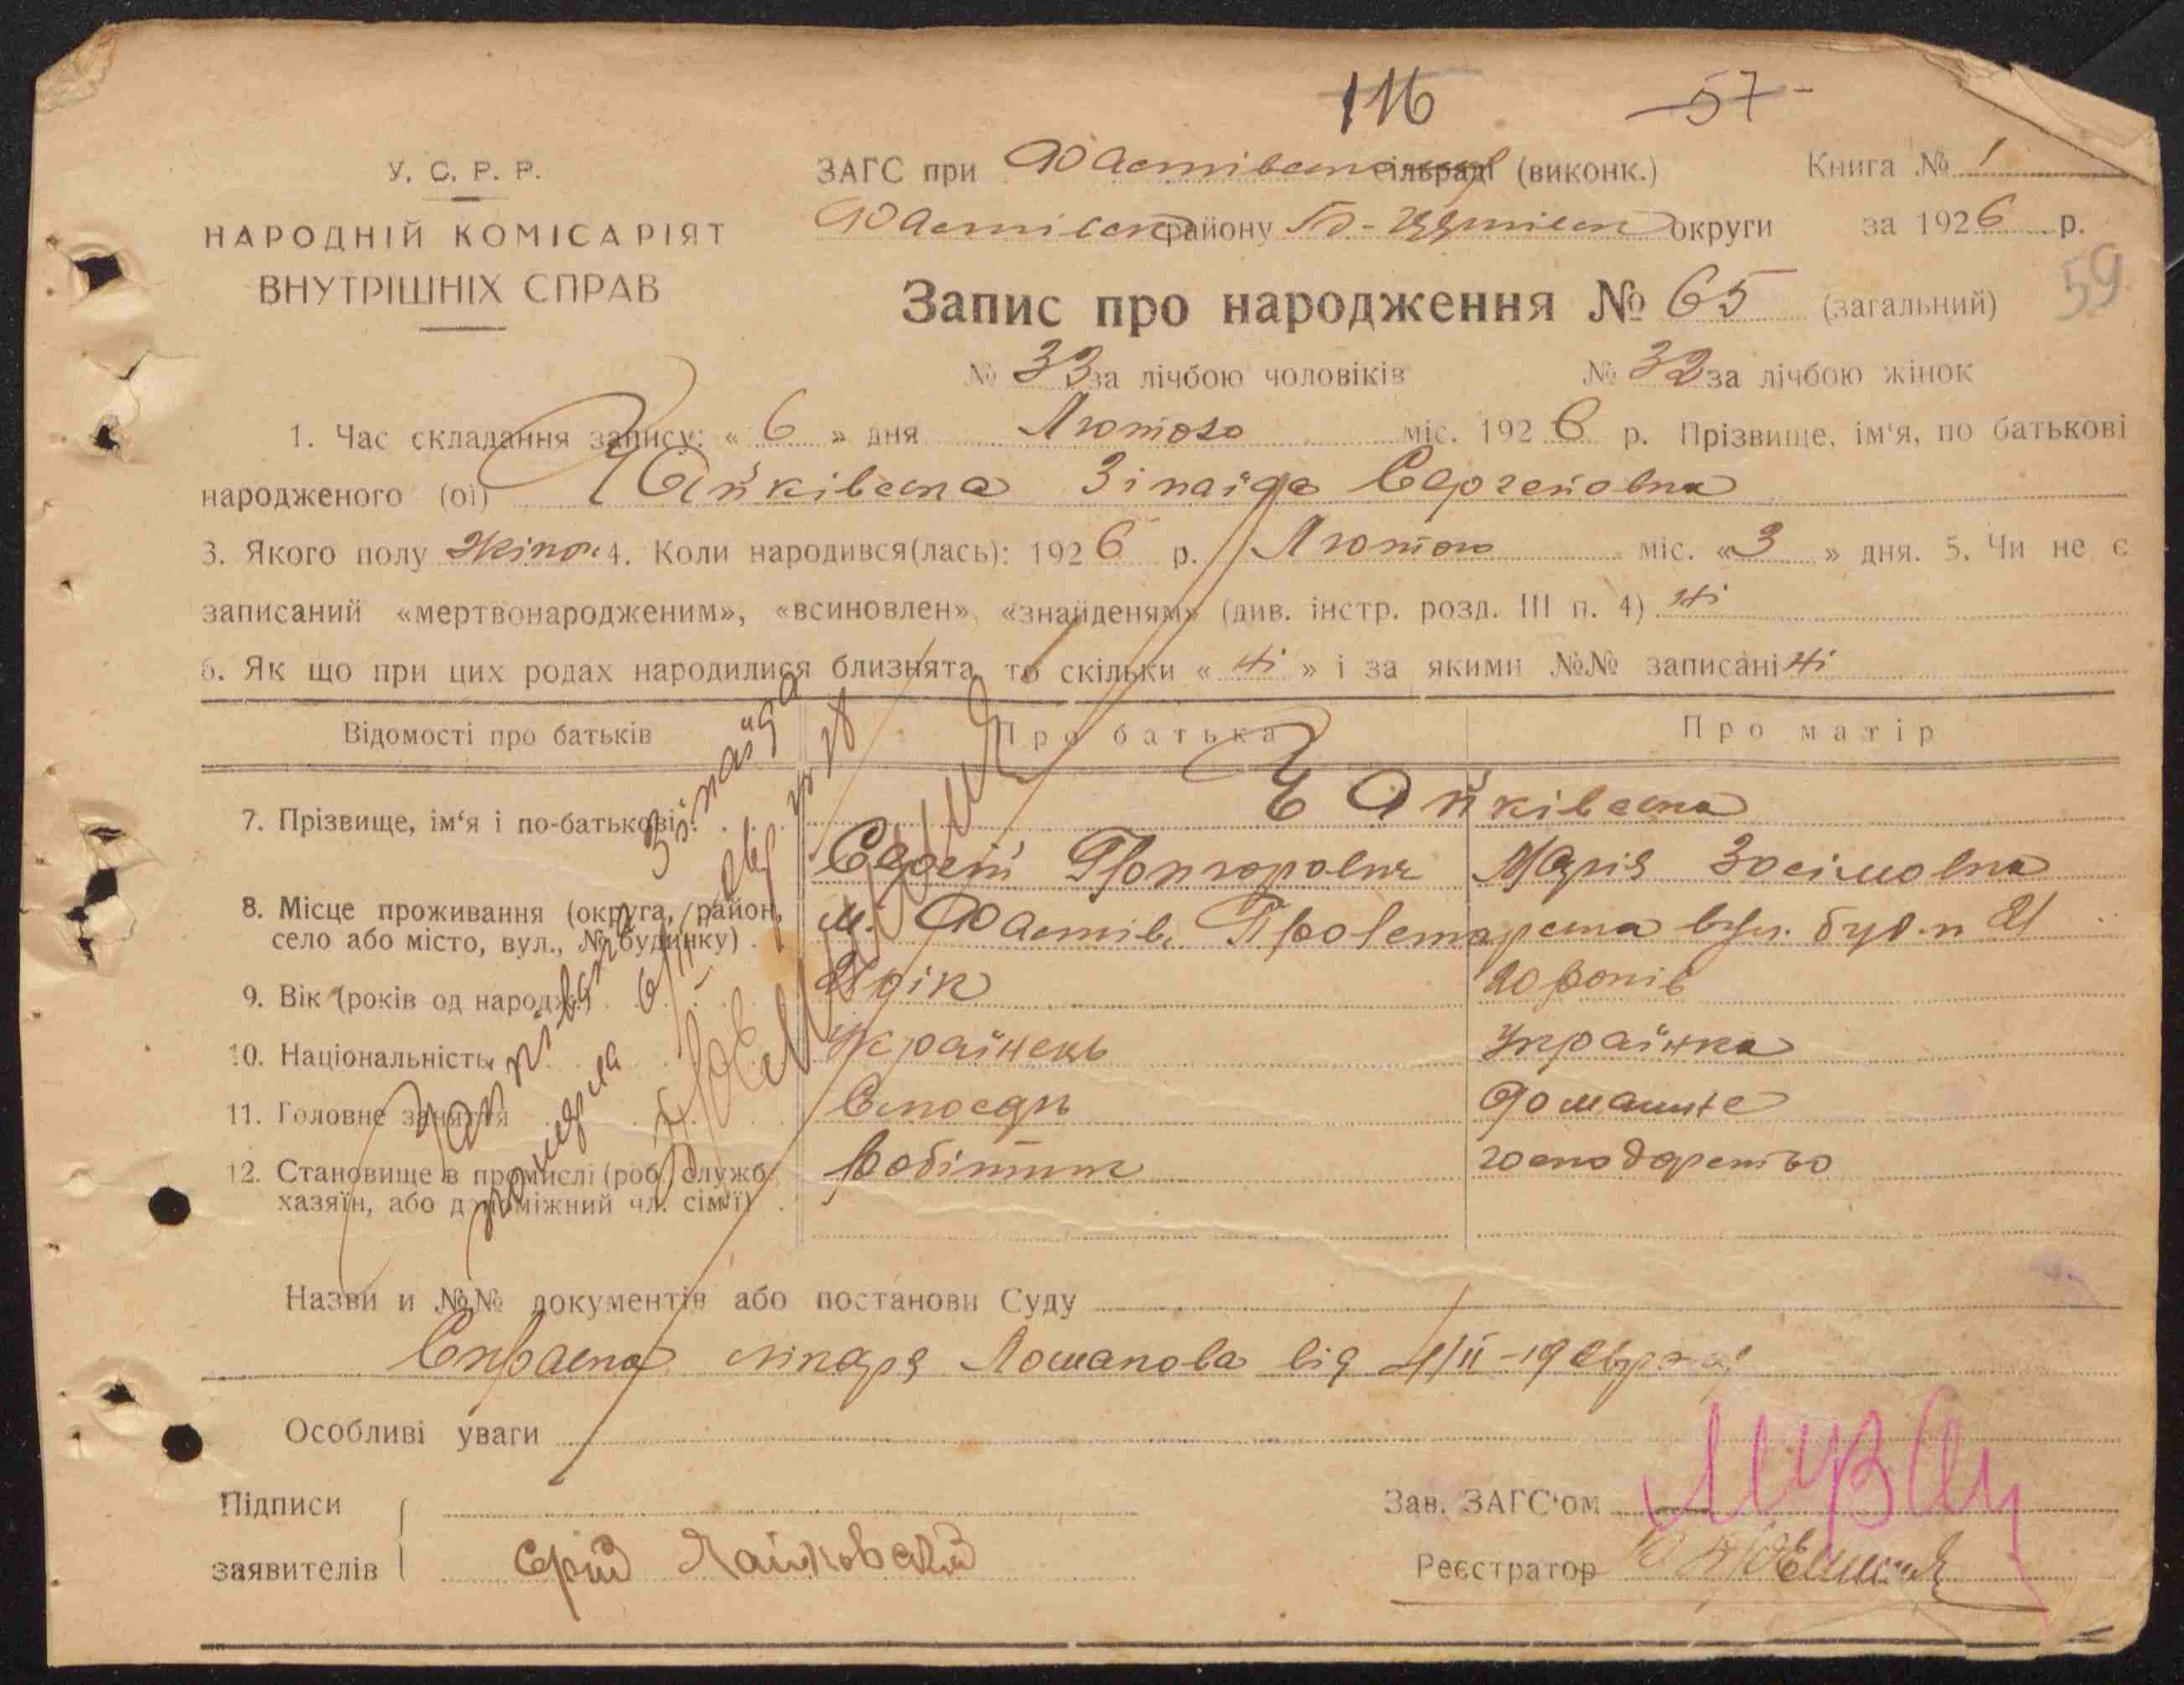 116 57
У. С. Р. Р.
НАРОДНІЙ КОМІСАРІЯТ
ВНУТРІШНІХ СПРАВ
ЗАГС при Фастівськ сільраді (виконк.) Книга № 1
Фастівськ району Б-Церківськ округи за 1926 р.
59
Запис про народження № 65 (загальний)
№ 33 за лічбою чоловіків № 32 за лічбою жінок
1. Час складання запису: « 6 » дня Лютого міс. 1926 р. Прізвище, ім'я, по батькові
народженого (ої) Зінаїда Сергейовна
3. Якого полу жіноч 4. Коли народився(лась): 1926 р. Лютого міс. « 3 » дня. 5. Чи не є
записаний «мертвонародженим», «всиновлен», «знайденям» (див. інстр. розд. III п. 4) Ні
6. Як що при цих родах народилися близнята, то скільки « Ні » і за якими №№ записані Ні
Відомості про батьків Про батька Про матір
7. Прізвище, ім'я і по-батькові
Сергій Марія Зосімовна
8. Місце проживання (округа, район,
село або місто, вул., № будинку) м. Фастів, Пролетарська вул. буд. н 21
9. Вік (років од народж.) 21 рік 20 років
10. Національність Українець Українка
11. Головне заняття Слюсарь домашнє
12. Становище в промислі (роб., служб.,
хазяїн, або допоміжний чл. сім'ї) робітник господарство
Зінаїда
померла
Назви и №№ документів або постанови Суду
Справка лікаря Лошакова від 4/II-1926 року
Особливі уваги
Підписи
заявителів
Зав. ЗАГС'ом
Реєстратор